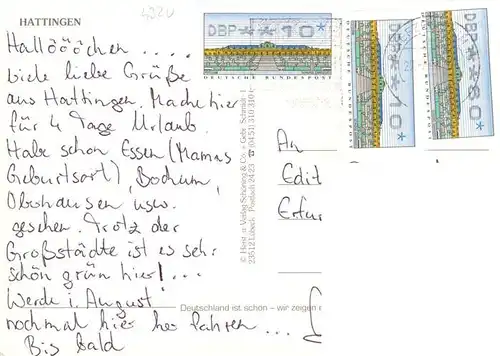 4320
HATTINGEN
Hallöööchen ....
viele liebe Grüße
aus Hattingen. Mache hier
für 4 Tage Urlaub.
Habe schon Essen (Mamas
Geburtsort), Bochum,
Oberhausen usw.
gesehen. Trotz der
Großstädte ist es sehr
schön grün hier! ...
Werde i. August
nochmal hier her fahren ...
Bis bald
Deutschland ist schön – wir zeigen e
© Horst Verlag Schöning & Co. + Gebr. Schmidt
23512 Lübeck · Postfach 2423 ☎ (0451) 310 310
DBP **10*
DEUTSCHE BUNDESPOST
DBP **10*
DEUTSCHE BUNDESPOST
DBP **80*
DEUTSCHE BUNDESPOST
An
Edit
Erfur